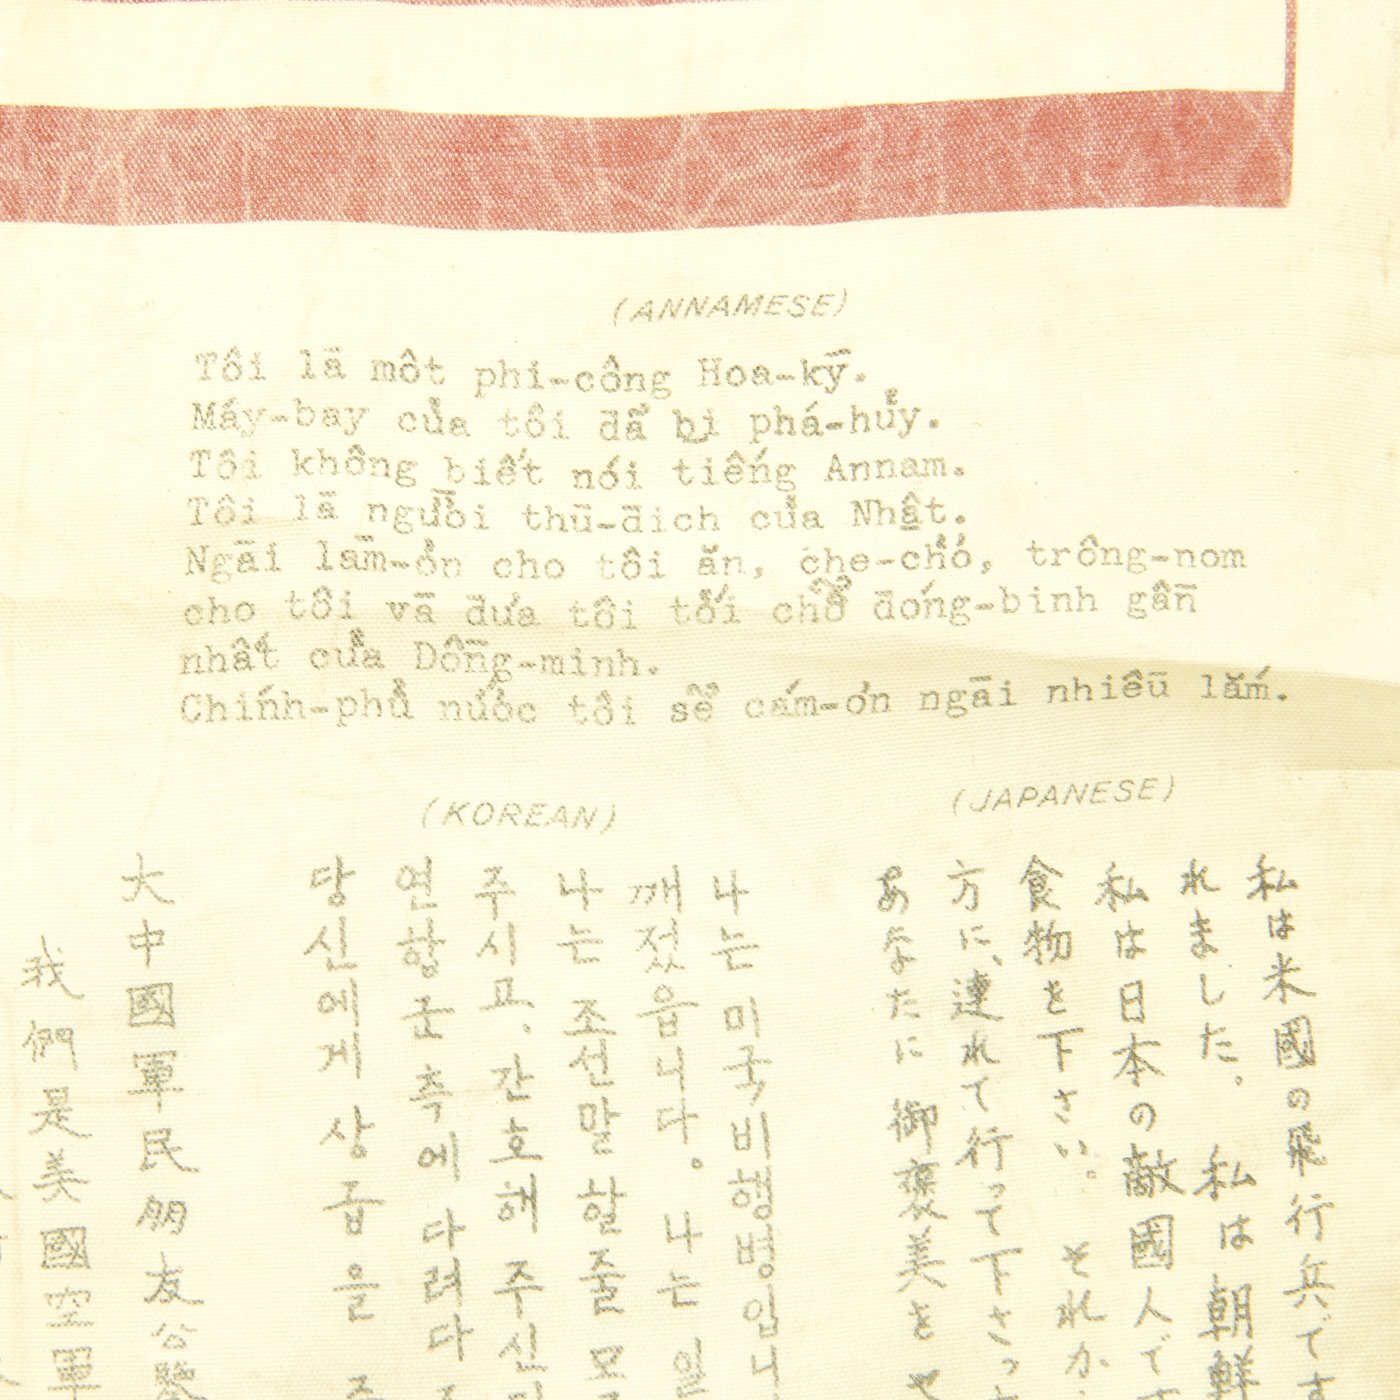 (ANNAMESE)
Tôi lā môt phi-công Hoa-kȳ.
Máy-bay của tôi đẩ bị phá-hủy.
Tôi không biết nói tiếng Annam.
Tôi lā người thū-đich của Nhật.
Ngāi lām-ơn cho tôi ăn, che-chở, trông-nom
cho tôi vā đưa tôi tới chổ đóng-binh gần
nhất của Dồng-minh.
Chính-phủ nước tôi sể cám-ơn ngāi nhiêū lắm.
(KOREAN)
(JAPANESE)
私は米國の飛行兵です
れました。私は朝鮮
私は日本の敵國人で
食物を下さい。それか
方に、連れて行って下さっ
あなたに御褒美を
나는 미국 비행병입니
깨젔읍니다。나는 일
나는 조선말 할줄 모
주시고. 간호해 주신
연합군 측에 다려다
당신에게 상급을 주
大中國軍民朋友公鑒
我們是美國空軍